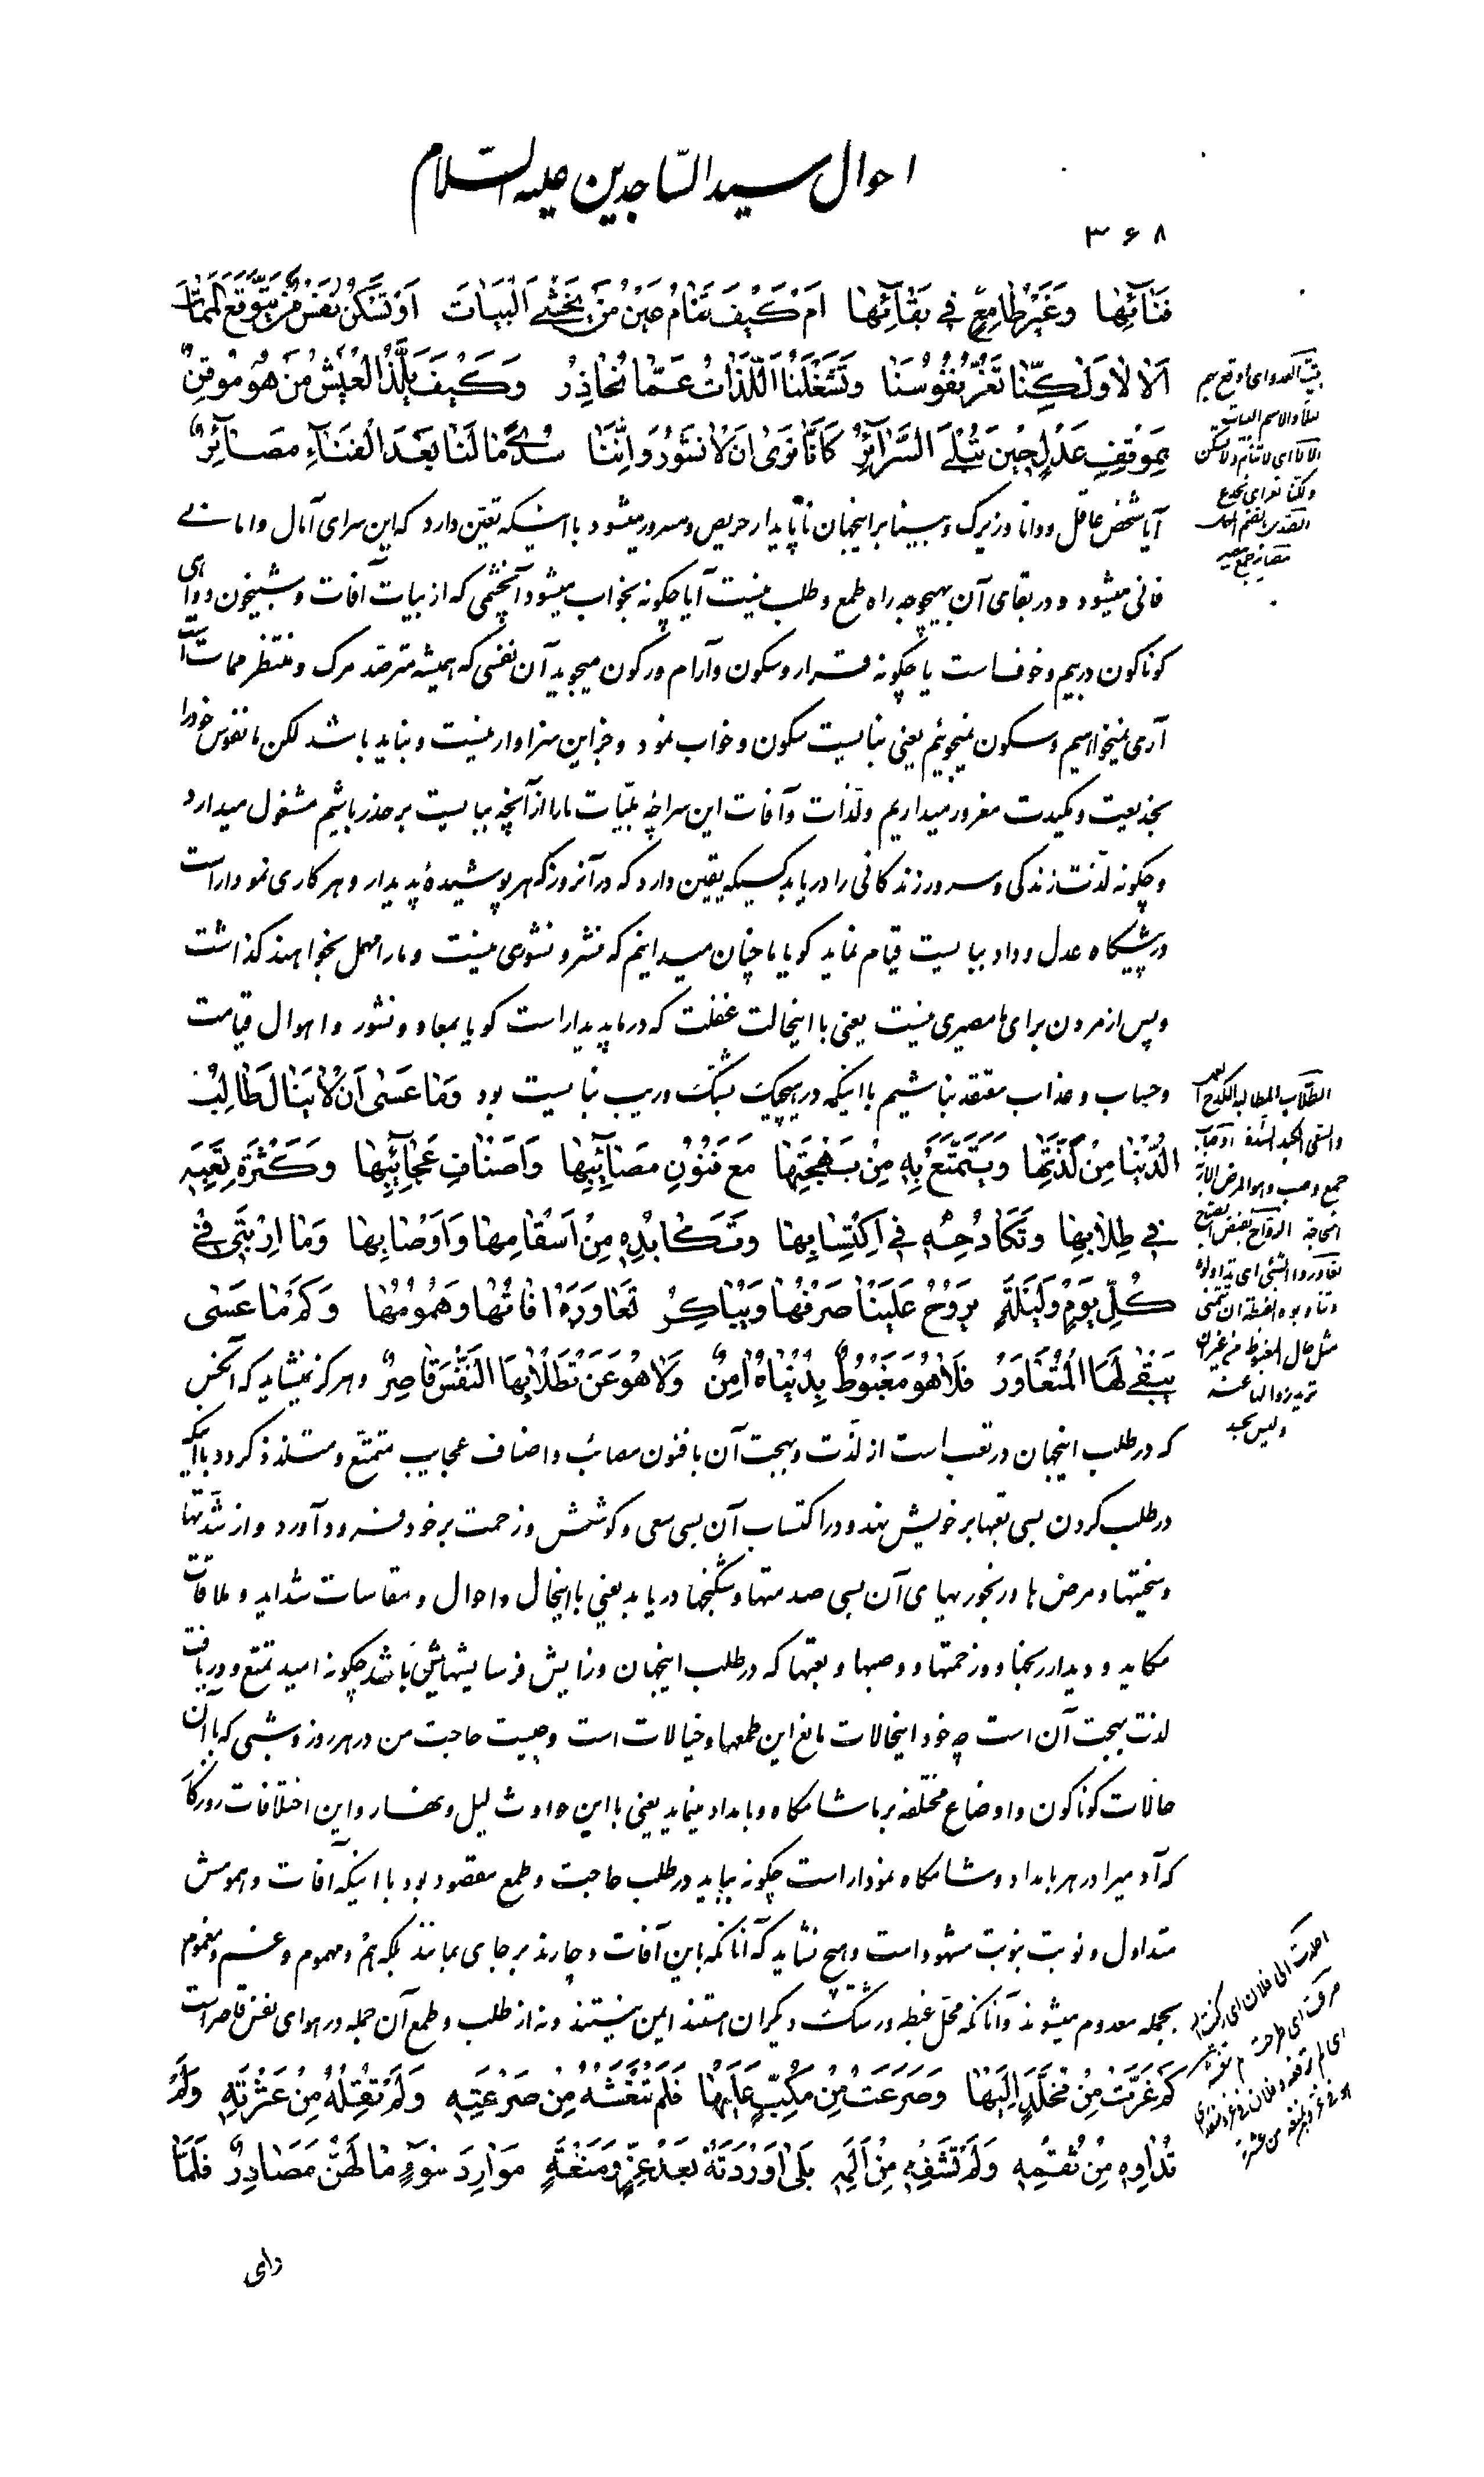 احوال سید السّاجدین علیه السّلام
۳۶۸
فَنَآئِهَا وَغَیْرُ طَامِعٍ فِی بَقَآئِهَا اَمْ كَیْفَ تَنَامُ عَیْنُ مَنْ یَخْشَی الْبَیَاتَ اَوْ تَسْكُنُ نَفْسُ مَنْ یَتَوَقَّعُ الْمَمَاتَ
اَلَا لَا وَلٰكِنَّا نَغُرُّ نُفُوسَنَا وَتَشْغَلُنَا اللَّذَاتُ عَمَّا نُحَاذِرُ وَكَیْفَ یَلَذُّ الْعَیْشَ مَنْ هُوَ مُوقِنٌ
بِمَوْقِفِ عَدْلٍ حِینَ تُبْلَی السَّرَآئِرُ كَاَنَّا نَرٰی اَنْ لَا نُشُورَ وَاَنَّنَا سُدًی مَا لَنَا بَعْدَ الْفَنَآءِ مَصَآئِرُ
آیا شخص عاقل و دانا و زیرک و بینا بر اینجهان ناپایدار حریص و مسرور میشود با اینکه یقین دارد که این سرای آمال و امانی
فانی میشود و در بقای آن بهیچوجه راه طمع و طلب نیست آیا چگونه بخواب میشود آنچشمی که از بیات آفات و شبیخون دواهی
کوناکون در بیم و خوف است یا چگونه قرار و سکون و آرام و رکون میجوید آن نفسی که همیشه مترصد مرک و منتظر ممات است
آری نمیخواهیم و سکون نمیجوئیم یعنی نبایست سکون و خواب نمود و جز این سزاوار نیست و نباید باشد لکن ما نفوس خود را
بخدیعت و مکیدت مغرور میداریم و لذّات و آفات این سراچهٔ بلیّات ما را از آنچه ببایست بر حذر باشیم مشغول میدارد
و چگونه لذّت زندکی و سرور زندکانی را دریابد کسیکه یقین دارد که در آنروز که هر پوشیدهٔ پدیدار و هر کاری نمودار است
در پیشگاه عدل و داد ببایست قیام نماید کویا ما چنان میدانیم که نشر و نشوری نیست و ما را مهمل بخواهند کذاشت
و پس از مردن برای ما مصیری نیست یعنی با اینحالت غفلت که در ما پدیدار است کویا بمعاد و نشور و اهوال قیامت
و حساب و عذاب معتقد نباشیم با اینکه در هیچیک بشک و ریب نبایست بود وَمَا عَسٰی اَنْ لَا یَنَالَ طَالِبُ
الدُّنْیَا مِنْ لَذَّتِهَا وَیَتَمَتَّعَ بِهِ مِنْ بَهْجَتِهَا مَعَ فُنُونِ مَصَآئِبِهَا وَاَصْنَافِ عَجَآئِبِهَا وَكَثْرَةِ تَعَبِهِ
فِی طِلَابِهَا وَتَكَادُحِهِ فِی اكْتِسَابِهَا وَتَكَابُدِهِ مِنْ اَسْقَامِهَا وَاَوْصَابِهَا وَمَا اِرْبَتِی فِی
كُلِّ یَوْمٍ وَلَیْلَةٍ یَرُوحُ عَلَیْنَا صَرْفُهَا وَیُبَاكِرُ تَعَاوَرَهُ اٰفَاتُهَا وَهُمُومُهَا وَكَمْ مَا عَسٰی
یَبْقٰی لَهَا الْمُتَعَاوَرُ فَلَا هُوَ مَغْبُوطٌ بِدُنْیَاهُ اٰمِنٌ وَلَا هُوَ عَنْ تَطْلَابِهَا النَّفْسَ قَاصِرٌ و هرکز نمیشاید که آنکس
که در طلب اینجهان در تعب است از لذّت و بهجت آن با فنون مصائب و اصناف عجایب متمتّع و مستلذ کردد با اینکه
در طلب کردن بسی تعبها بر خویش نهد و در اکتساب آن بسی سعی و کوشش و زحمت بر خود فرود آورد و از شدّتها
و سختیها و مرض ها و رنجوریهای آن بسی صدمتها و شکنجها دریابد یعنی با اینحال و احوال و مقاسات شداید و ملاقات
مکاید و دیدار رنجها و زحمتها و وصبها و تعبها که در طلب اینجهان و زایش فرسایشهایش باشد چگونه امید تمتّع و دریافت
لذت بهجت آن است چه خود اینحالات مانع این طمعها و خیالات است و چیست حاجت من در هر روز و شبی که با آن
حالات کوناکون و اوضاع مختلفه بر ما شامکاه و بامداد مینماید یعنی با این حوادث لیل و نهار و این اختلافات روزکار
که آدمیرا در هر بامداد و شامکاه نمودار است چگونه بباید در طلب حاجت و طمع مقصود بود با اینکه آفات و همومش
متداول و نوبت بنوبت مشهود است و هیچ نشاید که آنانکه باین آفات دچارند بر جای بمانند بلکه هم و مهموم و غم و مغموم
بجمله معدوم میشوند و آنانکه محل غبطه و رشک دیکران هستند ایمن نیستند و نه از طلب و طمع آن جمله در هوای نفس قاصر است
كَمْ غَرَّتْ مِنْ مُخَلَّدٍ اِلَیْهَا وَصَرَعَتْ مِنْ مُكِبٍّ عَلَیْهَا فَلَمْ تُنْعِشْهُ مِنْ صَرْعَتِهِ وَلَمْ تُقِلْهُ مِنْ عَثْرَتِهِ وَلَمْ
تُدَاوِهِ مِنْ سُقْمِهِ وَلَمْ تَشْفِهِ مِنْ اَلَمِهِ بَلٰی اَوْرَدَتْهُ بَعْدَ عِزٍّ وَمَنْعَةٍ مَوَارِدَ سُوٓءٍ مَا لَهُنَّ مَصَادِرُ فَلَمَّا
رای
بیّت العدو ای اوقع بهم
لیلا و الاسم البیات
ولکنّا نغر ای نخدع
مصایر جمع مصیر
الطلاب المطالبه الکدح
و السعی الکبد الشدة
جمع وصب و هو المرض
الحاجة الرواح
تعاوروا الشئ ای تداولوه
مثل حال المغبوط من غیر ان
ترید زوالها عنه
و لیس بحسد
اخلدت الی فلان ای رکنت الیه
صرعت ای طرحت